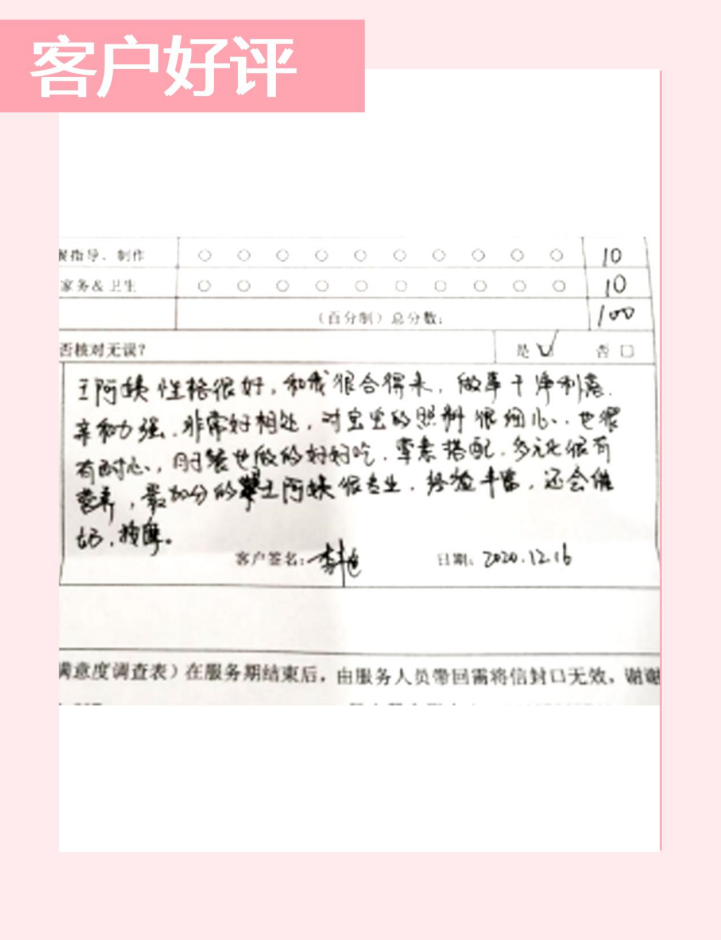 客户好评
餐指导、制作 ○ ○ ○ ○ ○ ○ ○ ○ ○ ○ 10
家务&卫生 ○ ○ ○ ○ ○ ○ ○ ○ ○ ○ 10
(百分制)总分数: 100
否核对无误? 是 √ 否 □
王阿姨性格很好,和我很合得来,做事干净利落.
亲和力强.非常好相处,对宝宝的照料很细心、也很
有耐心,月子餐也做的好好吃.荤素搭配.多元化很有
营养,最加分的是王阿姨很专业.经验丰富,还会催
奶.按摩。
客户签名: 日期: 2020.12.16
满意度调查表)在服务期结束后,由服务人员带回需将信封口无效,谢谢